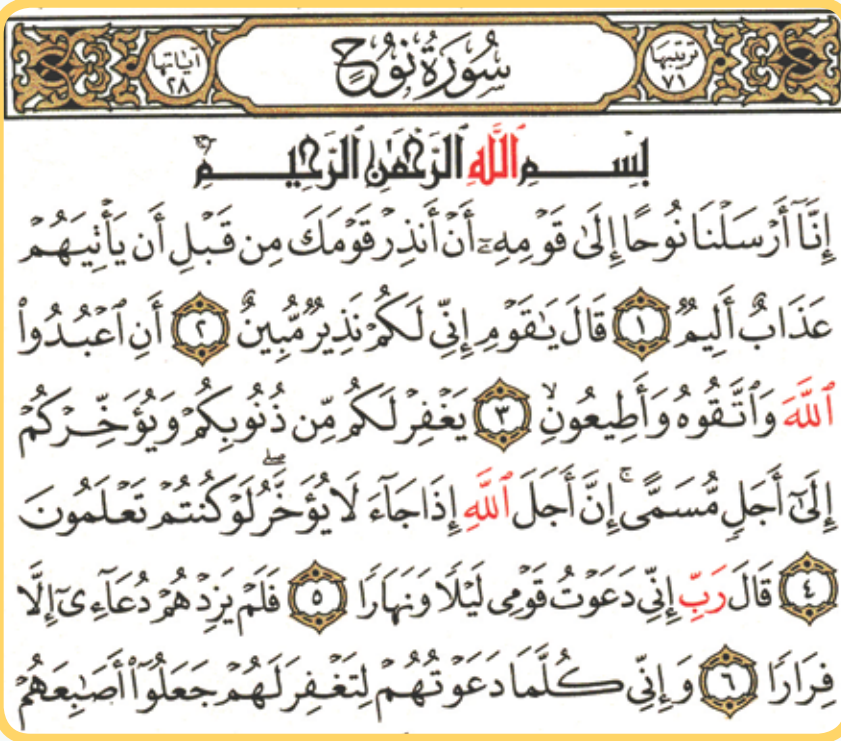 ترتيبها ٧١ سُورَةُ نُوحٍ آياتها ٢٨
بِسْمِ ٱللَّهِ ٱلرَّحْمَٰنِ ٱلرَّحِيمِ
إِنَّآ أَرْسَلْنَا نُوحًا إِلَىٰ قَوْمِهِۦٓ أَنْ أَنذِرْ قَوْمَكَ مِن قَبْلِ أَن يَأْتِيَهُمْ
عَذَابٌ أَلِيمٌ ١ قَالَ يَٰقَوْمِ إِنِّى لَكُمْ نَذِيرٌ مُّبِينٌ ٢ أَنِ ٱعْبُدُوا۟
ٱللَّهَ وَٱتَّقُوهُ وَأَطِيعُونِ ٣ يَغْفِرْ لَكُم مِّن ذُنُوبِكُمْ وَيُؤَخِّرْكُمْ
إِلَىٰٓ أَجَلٍ مُّسَمًّى ۚ إِنَّ أَجَلَ ٱللَّهِ إِذَا جَآءَ لَا يُؤَخَّرُ ۖ لَوْ كُنتُمْ تَعْلَمُونَ
٤ قَالَ رَبِّ إِنِّى دَعَوْتُ قَوْمِى لَيْلًا وَنَهَارًا ٥ فَلَمْ يَزِدْهُمْ دُعَآءِىٓ إِلَّا
فِرَارًا ٦ وَإِنِّى كُلَّمَا دَعَوْتُهُمْ لِتَغْفِرَ لَهُمْ جَعَلُوٓا۟ أَصَٰبِعَهُمْ